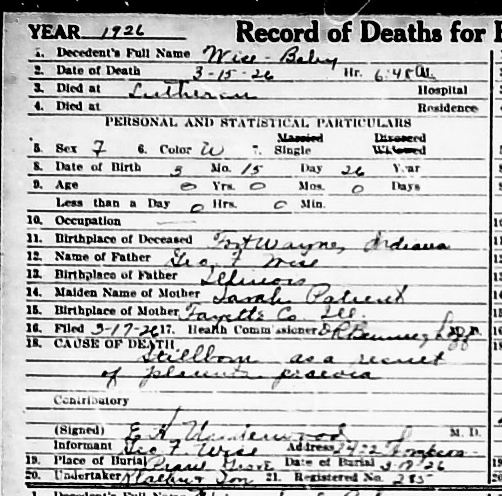 YEAR 1926 Record of Deaths for
1. Decedent's Full Name Wise - Baby
2. Date of Death 3-15-26 Hr. 6:45 a.
3. Died at Lutheran Hospital
4. Died at Residence
PERSONAL AND STATISTICAL PARTICULARS
Married Divorced
5. Sex F 6. Color W 7. Single Widowed
8. Date of Birth 3 Mo. 15 Day 26 Year
9. Age 0 Yrs. 0 Mos. 0 Days
Less than a Day 0 Hrs. 0 Min.
10. Occupation
11. Birthplace of Deceased Fort Wayne, Indiana
12. Name of Father Geo. F. Wise
13. Birthplace of Father Illinois
14. Maiden Name of Mother Sarah Patient
15. Birthplace of Mother Fayette Co. Ill.
16. Filed 3-17-26 17. Health Commissioner
18. CAUSE OF DEATH
Stillborn as a result
of placenta praevia
Contributory
(Signed) E. H. Underwood M. D.
Informant Geo F. Wise Address
19. Place of Burial Prairie Grove Date of Burial 26
20. Undertaker & Son 21. Registered No. 285
1. Decedent's Full Name